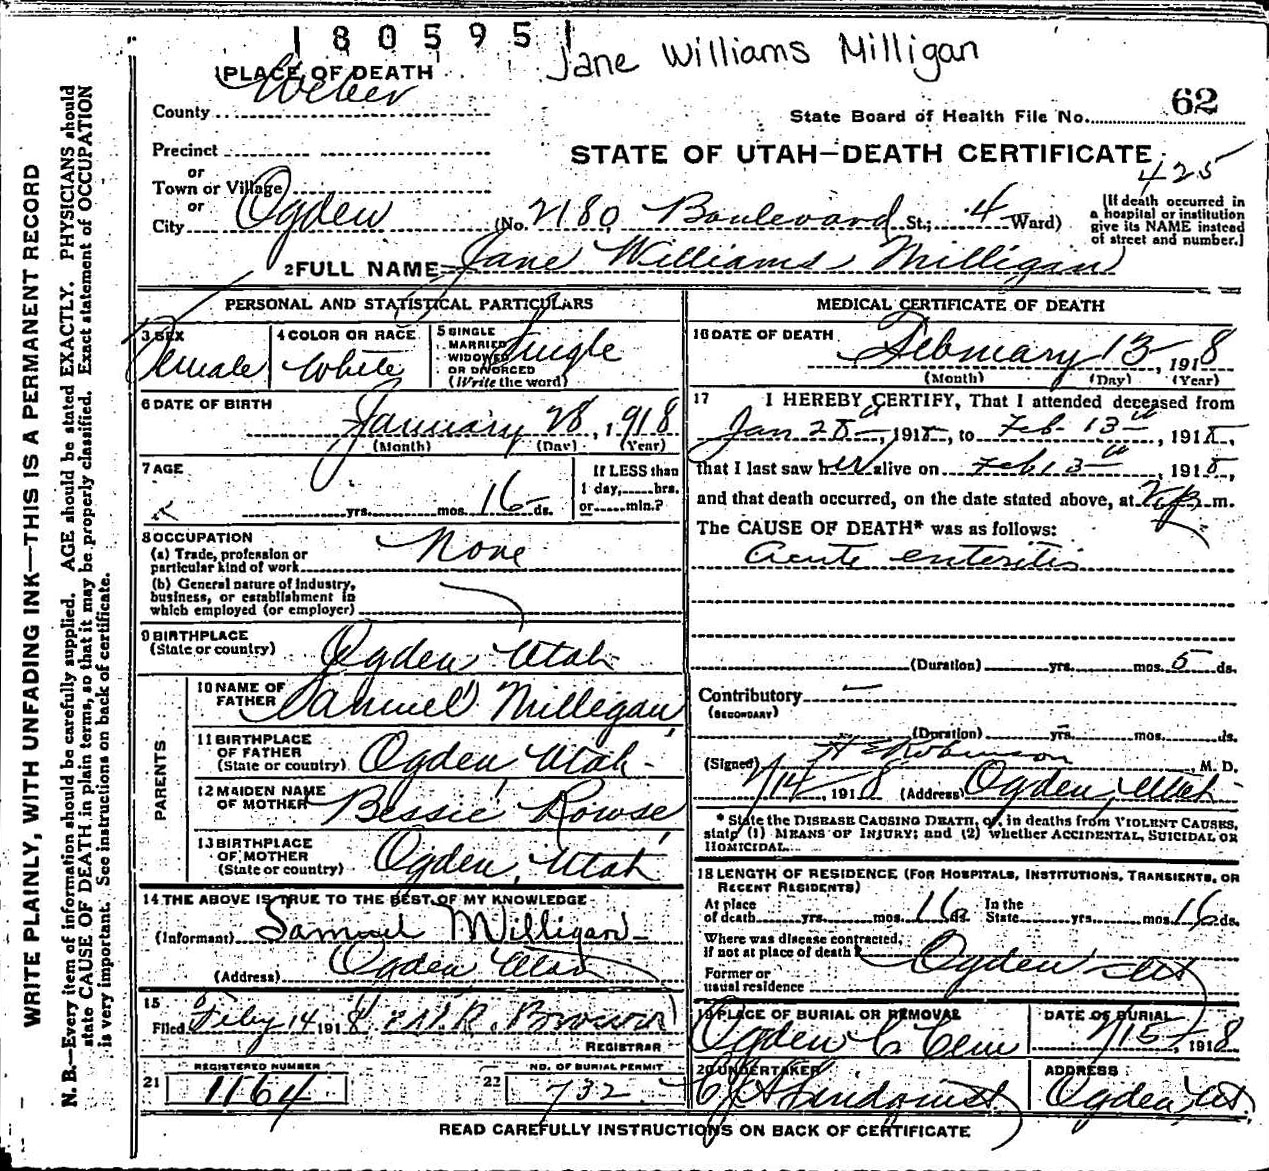 1 8 0 5 9 5 1
Jane Williams Milligan
PLACE OF DEATH
County Weber
State Board of Health File No. 62
Precinct
STATE OF UTAH—DEATH CERTIFICATE
425
or
Town or Village
or
City Ogden (No. 2180 Boulevard St.; 4 Ward)
[If death occurred in
a hospital or institution
give its NAME instead
of street and number.]
2 FULL NAME Jane Williams Milligan
WRITE PLAINLY, WITH UNFADING INK—THIS IS A PERMANENT RECORD
N. B.—Every item of information should be carefully supplied. AGE should be stated EXACTLY. PHYSICIANS should
state CAUSE OF DEATH in plain terms, so that it may be properly classified. Exact statement of OCCUPATION
is very important. See instructions on back of certificate.
PERSONAL AND STATISTICAL PARTICULARS
3 SEX
Female
4 COLOR OR RACE
White
5 SINGLE
MARRIED
WIDOWED
OR DIVORCED
(Write the word)
Single
6 DATE OF BIRTH
January 28, 1918
(Month) (Day) (Year)
7 AGE
yrs. mos. 16 ds.
If LESS than
1 day, hrs.
or min.?
8 OCCUPATION
(a) Trade, profession or
particular kind of work None
(b) General nature of industry,
business, or establishment in
which employed (or employer)
9 BIRTHPLACE
(State or country) Ogden Utah
PARENTS
10 NAME OF
FATHER Samuel Milligan
11 BIRTHPLACE
OF FATHER
(State or country) Ogden Utah
12 MAIDEN NAME
OF MOTHER Bessie Rowse
13 BIRTHPLACE
OF MOTHER
(State or country) Ogden, Utah
14 THE ABOVE IS TRUE TO THE BEST OF MY KNOWLEDGE
(Informant) Samuel Milligan
(Address) Ogden Utah
15
Filed Feby 14 1918 Brown
REGISTRAR
21 REGISTERED NUMBER
1164
22 NO. OF BURIAL PERMIT
732
MEDICAL CERTIFICATE OF DEATH
16 DATE OF DEATH
February 13, 1918
(Month) (Day) (Year)
17 I HEREBY CERTIFY, That I attended deceased from
Jan 28th, 1918, to Feb 13th, 1918,
that I last saw her alive on Feb 13th, 1918,
and that death occurred, on the date stated above, at m.
The CAUSE OF DEATH* was as follows:
Acute enteritis
(Duration) yrs. mos. 5 ds.
Contributory —
(SECONDARY)
(Duration) yrs. mos. ds.
(Signed) H E Robinson, M. D.
2/14, 1918 (Address) Ogden, Utah
* State the DISEASE CAUSING DEATH, or, in deaths from VIOLENT CAUSES,
state (1) MEANS OF INJURY; and (2) whether ACCIDENTAL, SUICIDAL OR
HOMICIDAL.
18 LENGTH OF RESIDENCE (FOR HOSPITALS, INSTITUTIONS, TRANSIENTS, OR
RECENT RESIDENTS)
At place
of death yrs. mos. 16 ds. In the
State yrs. mos. 16 ds.
Where was disease contracted,
if not at place of death?
Former or
usual residence Ogden Ut
19 PLACE OF BURIAL OR REMOVAL
Ogden C Cem
DATE OF BURIAL
2/15, 1918
20 UNDERTAKER
Lindquist
ADDRESS
Ogden, Ut
READ CAREFULLY INSTRUCTIONS ON BACK OF CERTIFICATE